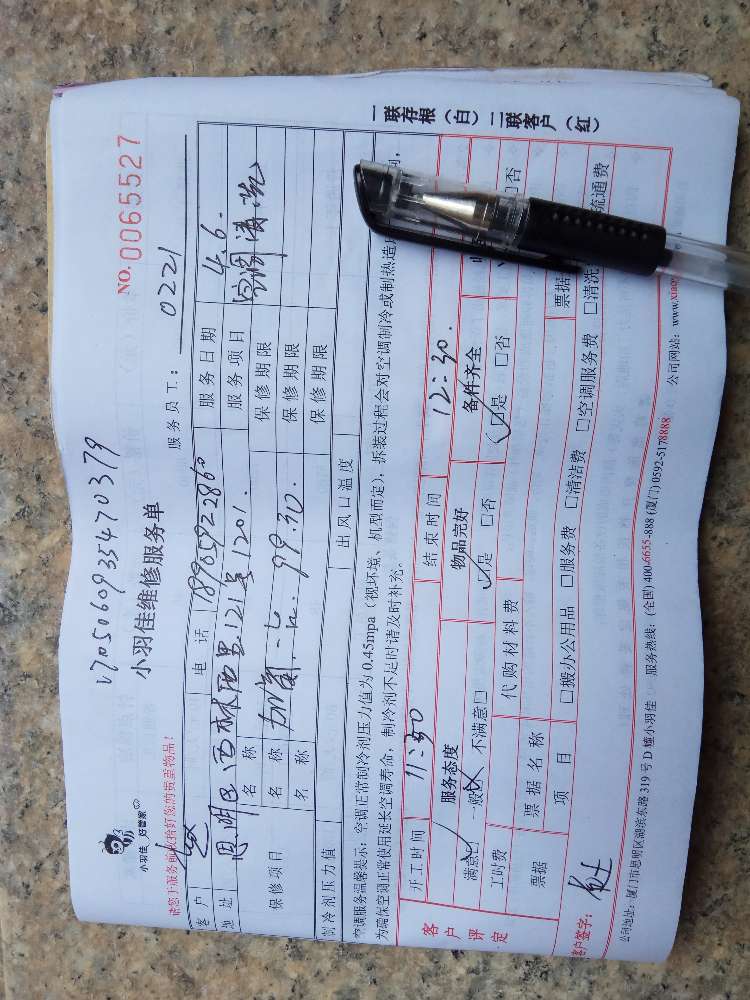 小羽佳 好管家
小羽佳维修服务单
NO. 0065527
请您于服务前收拾好您的贵重物品!
服务员工: 0221
客户 电话 服务日期 4.6.
地址 思明区西林西里121号1201. 服务项目 空调清洗
保修项目
名称 保修期限
名称 保修期限
名称 保修期限
制冷剂压力值 出风口温度
空调服务温馨提示: 空调正常制冷剂压力值为0.45mpa(视环境、机型而定), 拆装过程会对空调制冷或制热造成
为确保空调正常使用延长空调寿命, 制冷剂不足时请及时补充。
客户评定
开工时间 11:30 结束时间 12:30.
服务态度 物品完好 备件齐全
满意□ 一般□ 不满意□ □是 □否 □是 □否 □否
工时费 代购材料费
票据 票据名称 票据
项目 □搬办公用品 □服务费 □清洁费 □空调服务费 □清洗 流通费
客户签字:
公司地址: 厦门市思明区湖滨东路319号D幢小羽佳 服务热线: (全国)400-6655-888 (厦门)0592-5178888 公司网站: www.xiao
一联存根(白) 二联客户(红)